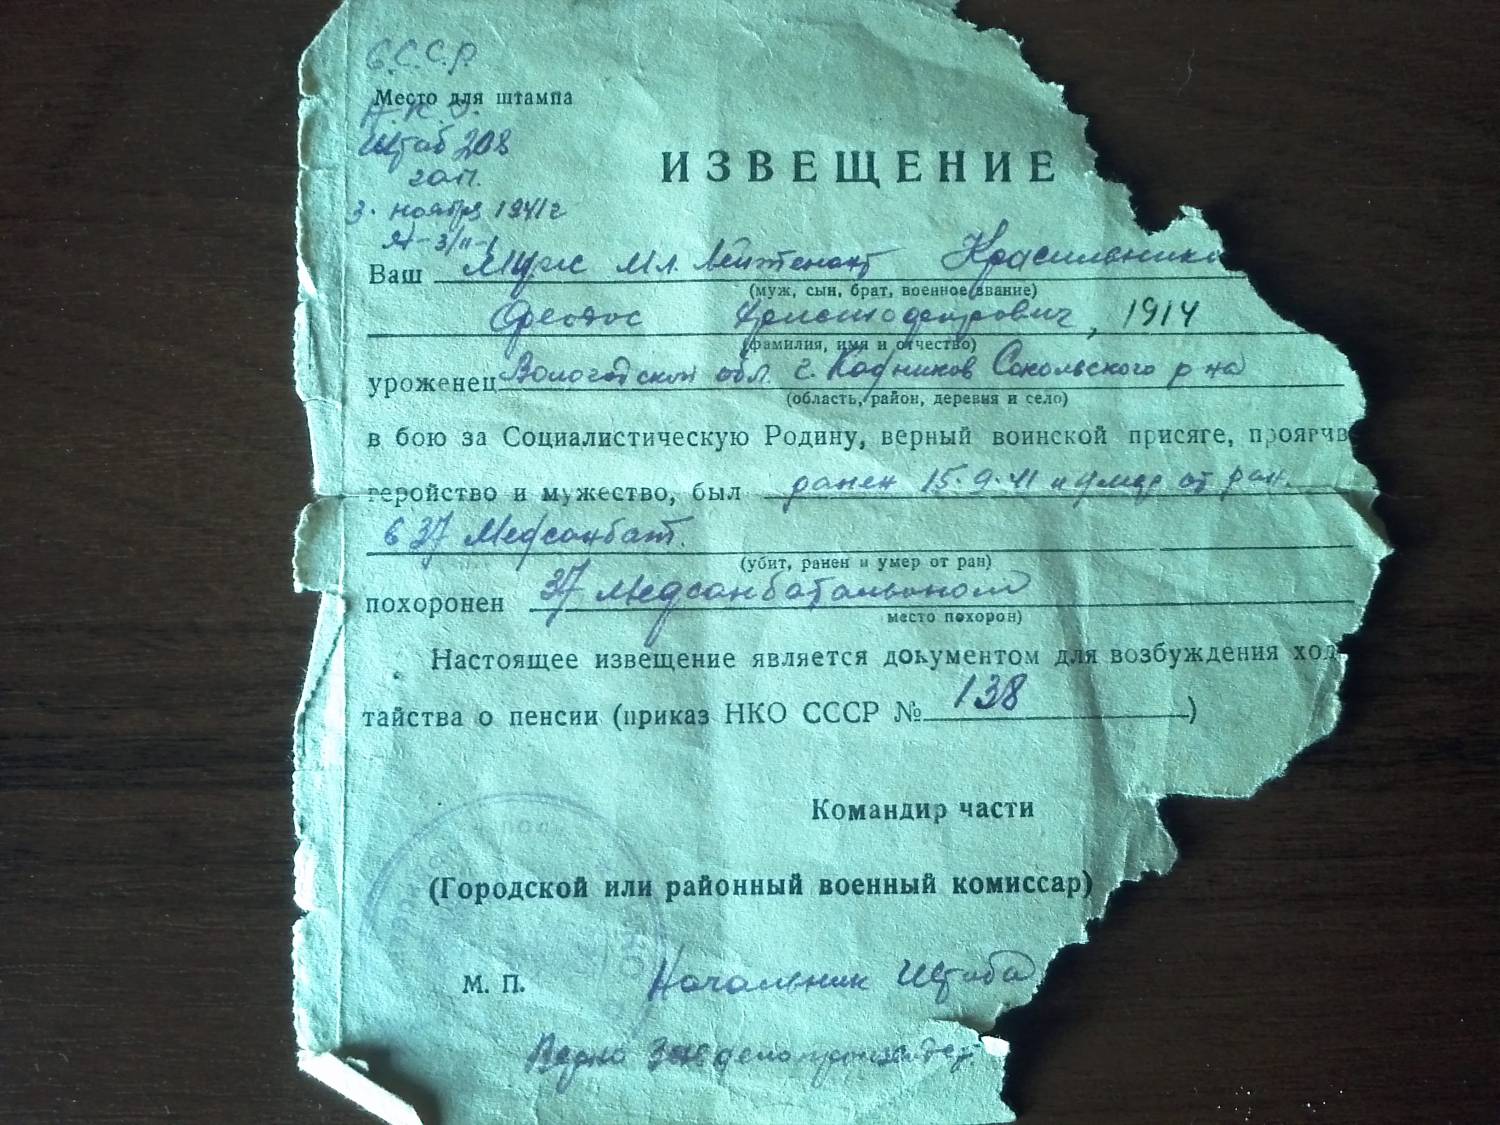 С.С.С.Р.
Место для штампа
Н.К.О.
Штаб 208
зап.
3. ноября 1941 г
ИЗВЕЩЕНИЕ
Ваш муж мл. лейтенант Красильнико
Христофорович, 1914
(муж, сын, брат, военное звание)
(фамилия, имя и отчество)
уроженец Вологодской обл. г. Кадников Сокольского р-на
(область, район, деревня и село)
в бою за Социалистическую Родину, верный воинской присяге, проявив
геройство и мужество, был ранен 15.9.41 и умер от ран.
в 37 Медсанбат.
(убит, ранен и умер от ран)
похоронен 37 Медсанбатальоном
место похорон)
Настоящее извещение является документом для возбуждения ход
тайства о пенсии (приказ НКО СССР № 138)
Командир части
(Городской или районный военный комиссар)
М. П. Начальник Штаба
Верно